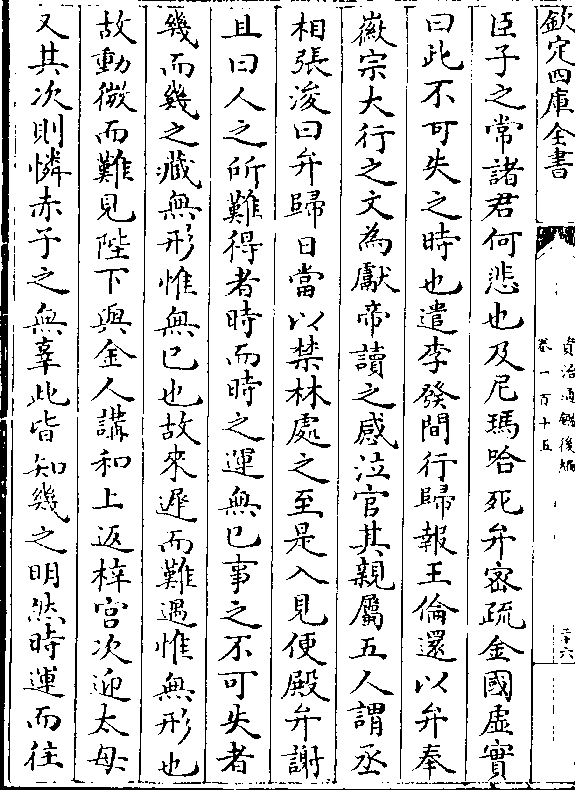 欽定四庫全書
資治通鑑後編
卷一百十五
二十六
臣子之常諸君何悲也及尼瑪哈死弁密疏金國虛實
曰此不可失之時也遣李發間行歸報王倫還以弁奉
徽宗大行之文為獻帝讀之感泣官其親屬五人謂丞
相張浚曰弁歸日當以禁林處之至是入見便殿弁謝
且曰人之所難得者時而時之運無已事之不可失者
幾而幾之藏無形惟無已也故來遲而難遇惟無形也
故動微而難見陛下與金人講和上返梓宮次迎太母
又其次則憐赤子之無辜此皆知幾之明然時運而往